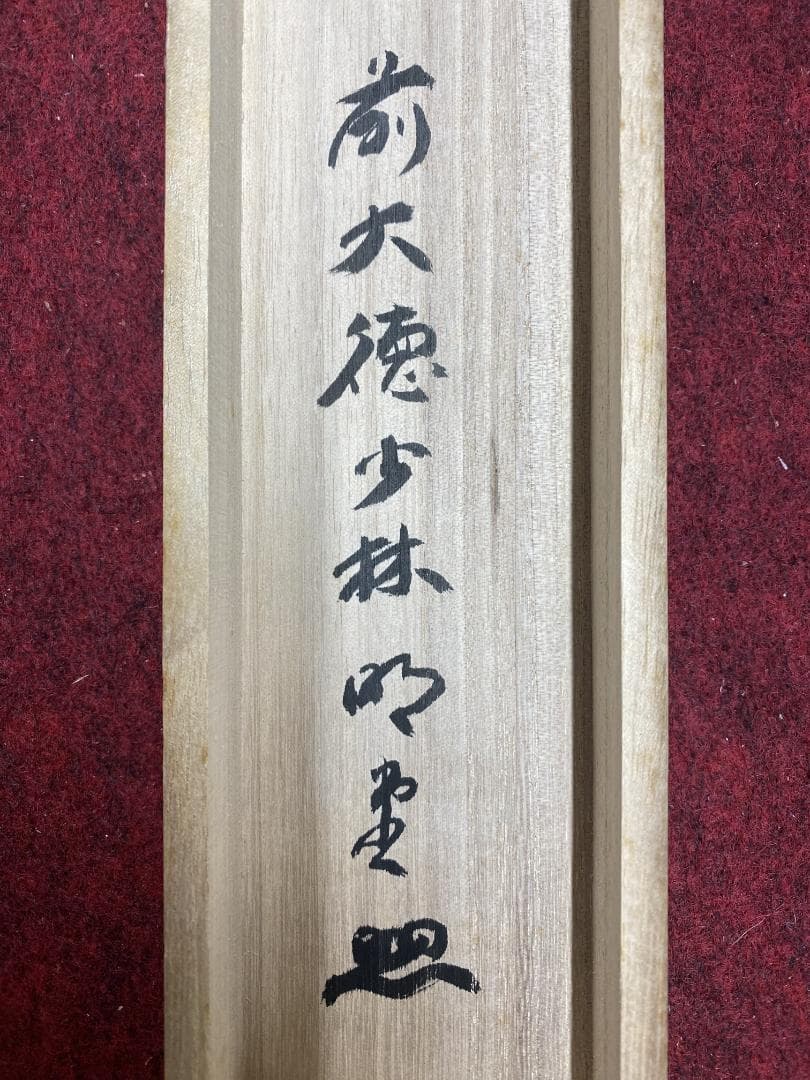 前大徳少林明堂